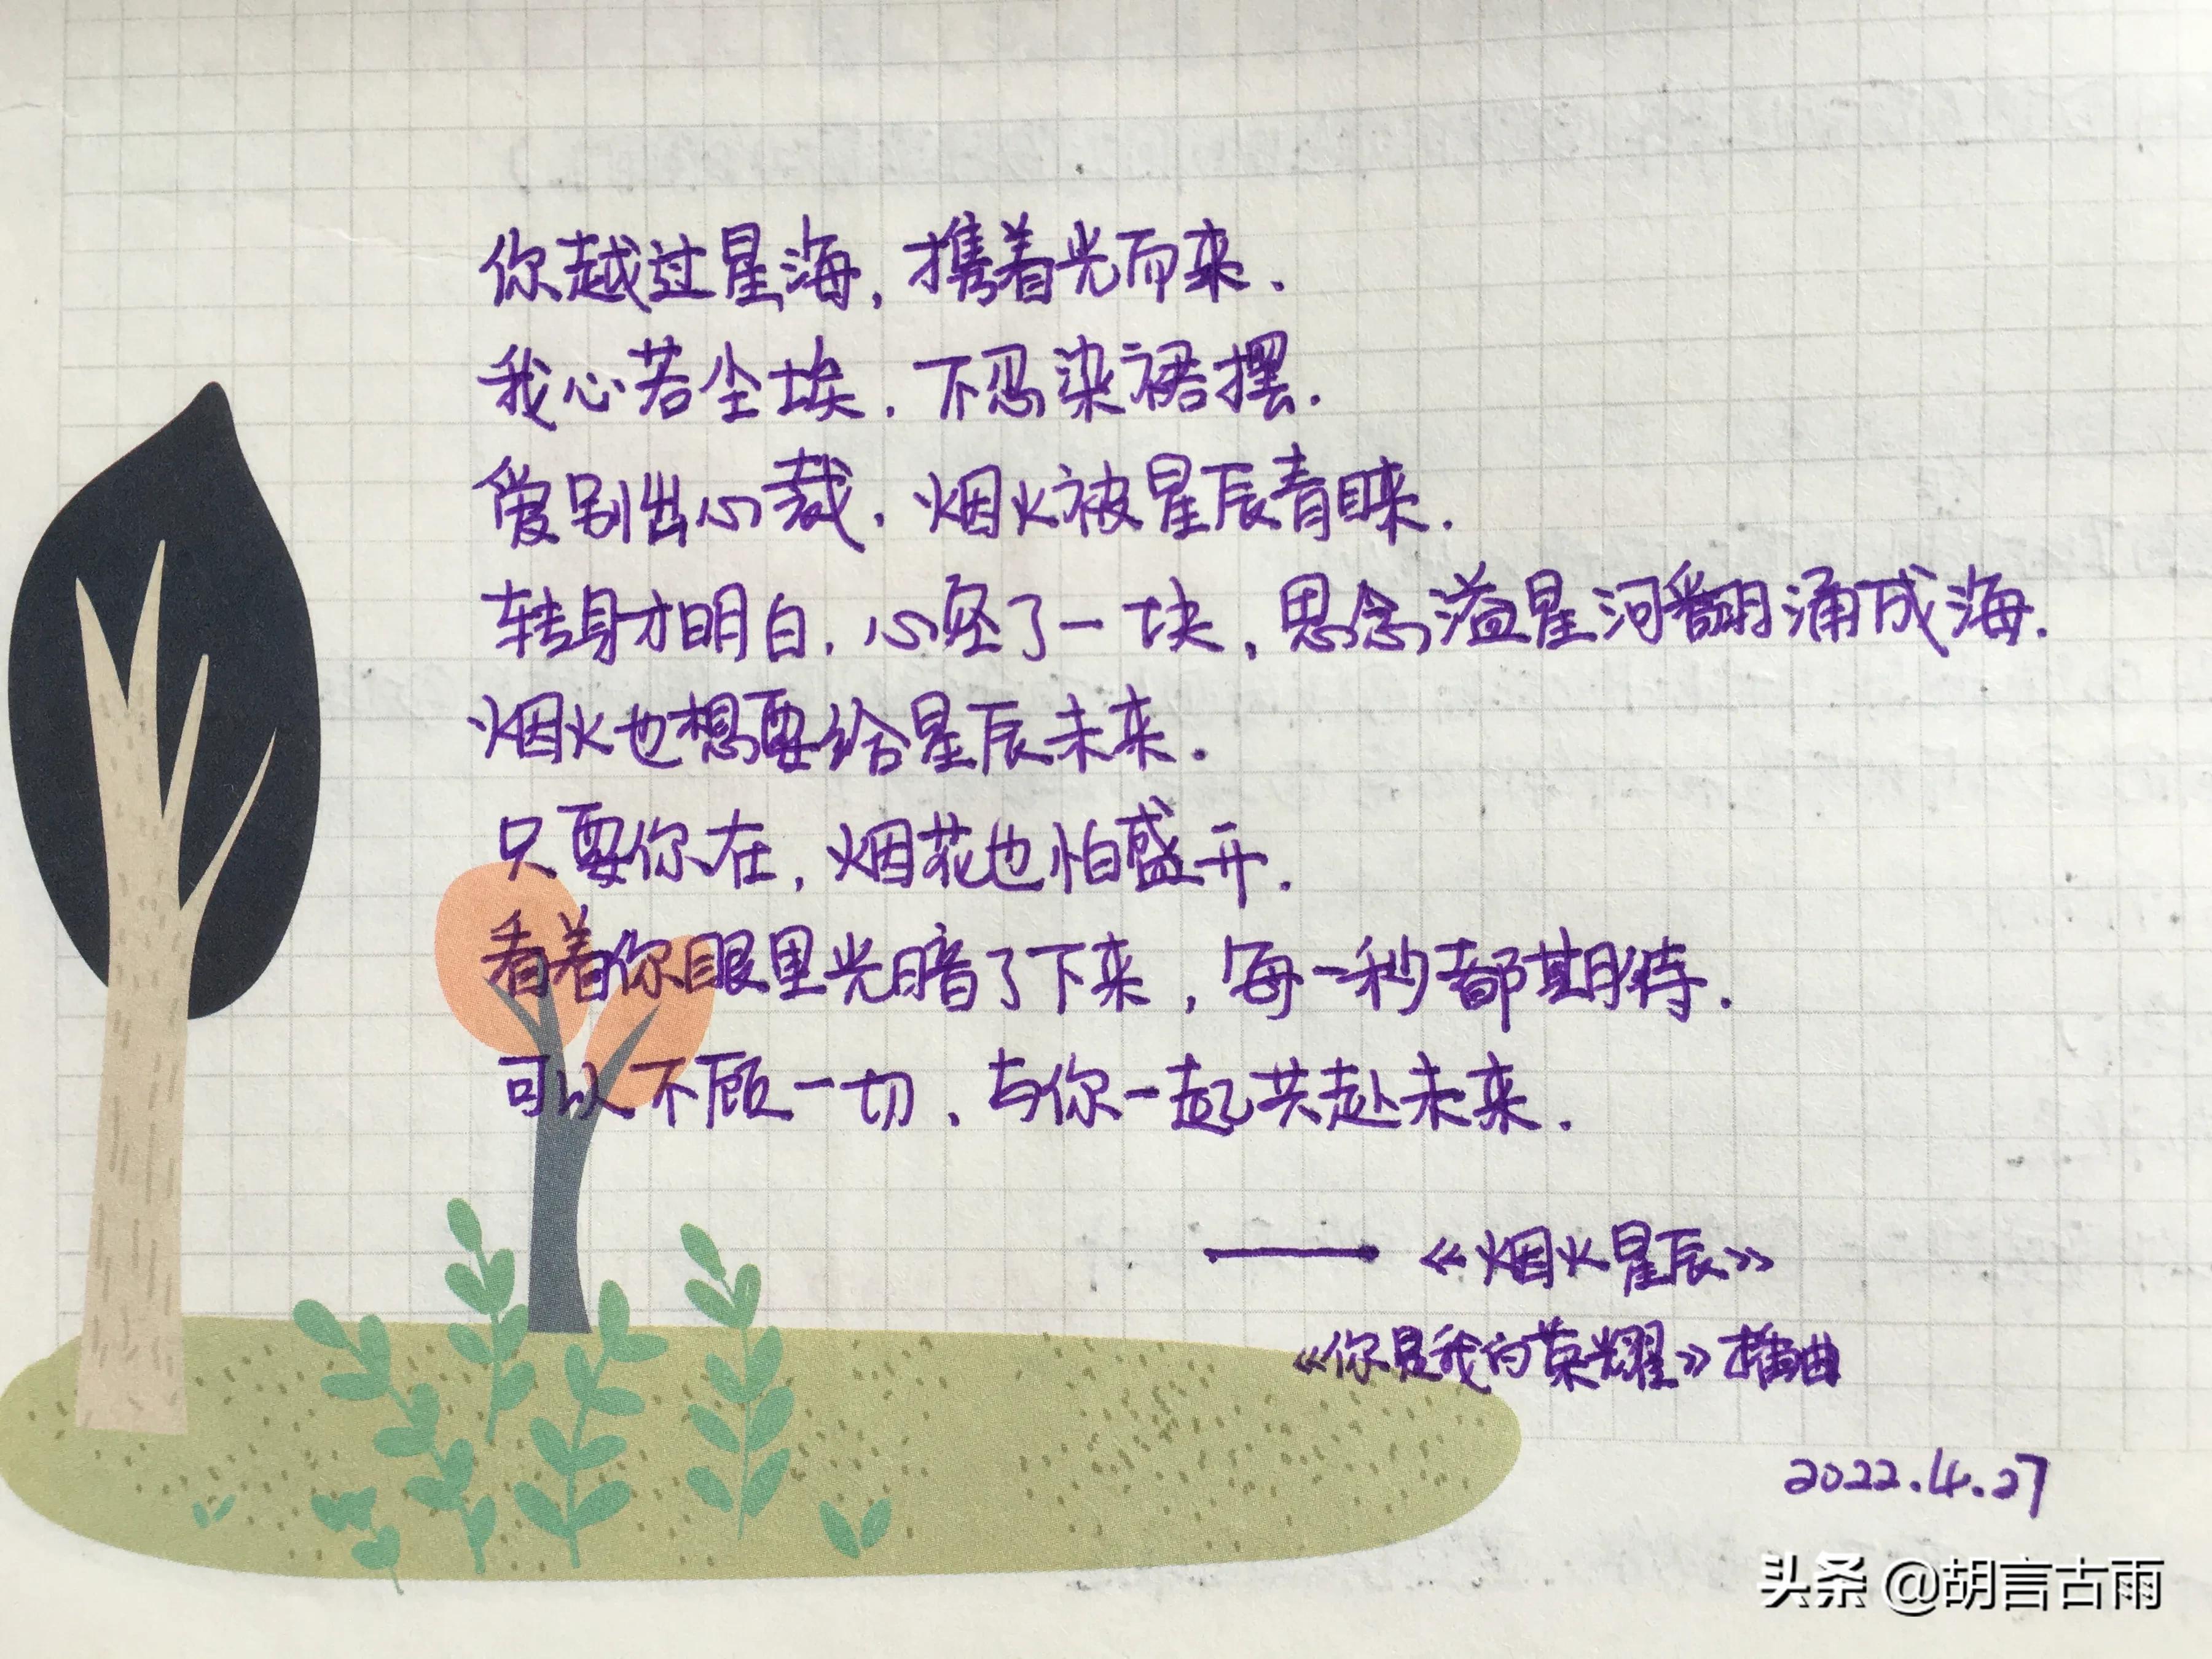 你越过星海，携着光而来.
我心若尘埃.不忍染裙摆.
爱别出心裁.烟火被星辰青睐.
转身才明白.心空了一块,思念溢星河翻涌成海.
烟火也想要给星辰未来.
只要你在,烟花也怕盛开.
看着你眼里光暗了下来,每一秒都期待.
可以不顾一切、与你一起共赴未来.
——《烟火星辰》
《你是我的荣耀》插曲
2022.4.27
头条 @胡言古雨